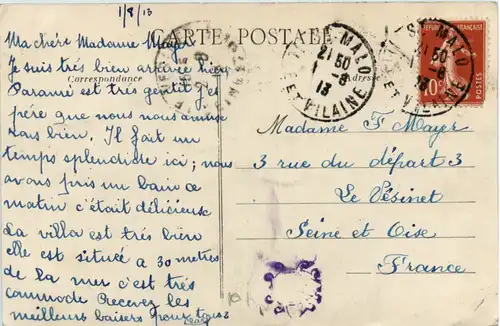 1/8/13
CARTE POSTALE
Correspondance
Ma chère Madame Mayer
Je suis très bien arrivée hier
Paramé est très gentil J'es
père que nous nous amuse
rons bien. Il fait un
temps splendide ici; nous
avons pris un bain ce
matin c'était délicieux
La villa est très bien
elle est située a 30 mètres
de la mer c'est très
commode Recevez les
meilleurs baisers pour tous
ST MALO
21 50
1-8
13
ET VILAINE
ST MALO
21 50
1-8
13
ET VILAINE
FRANÇAISE
10
POSTES
Madame F Mayer
3 rue du départ 3
Le Vésinet
Seine et Oise
France